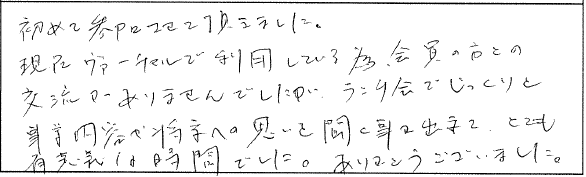 初めて参加させて頂きました。
現在バーチャルで利用している為、会員の方との
交流がありませんでしたが、ランチ会でじっくりと
事業内容や将来への思いを聞く事が出来て、とても
有意義な時間でした。ありがとうございました。